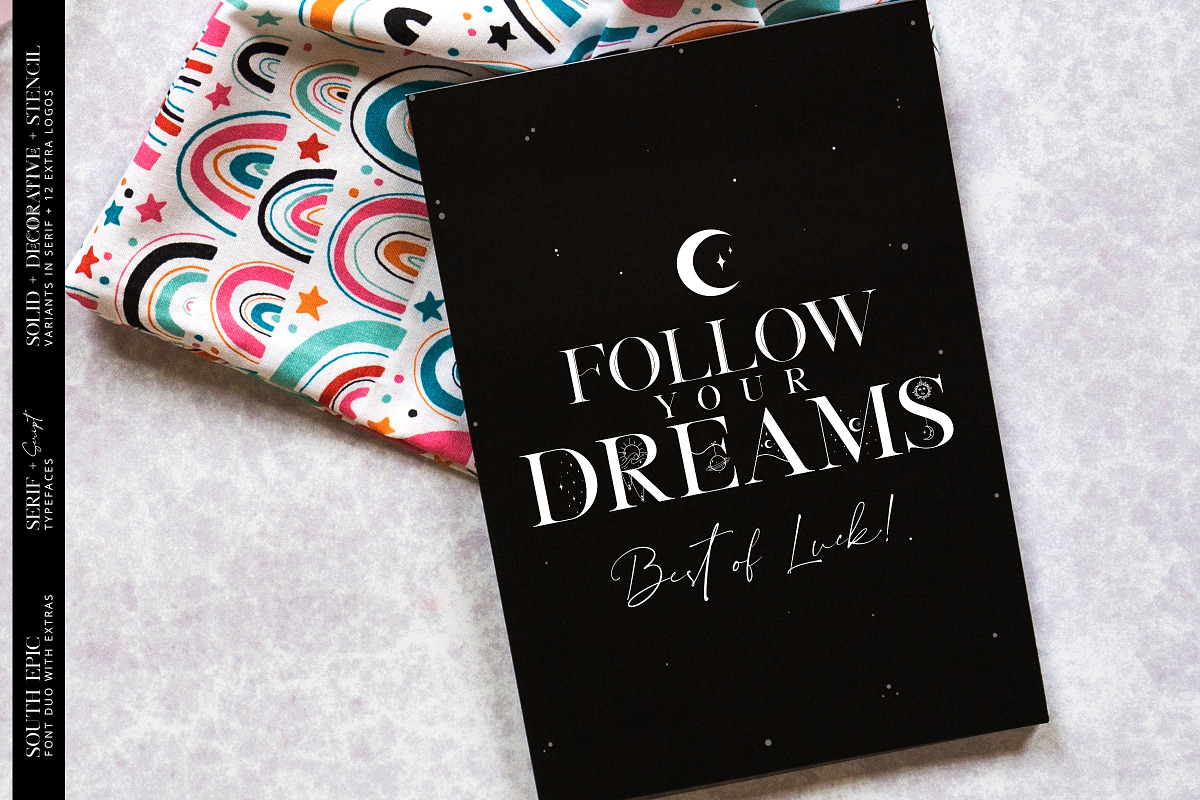 SOLID + DECORATIVE + STENCIL
VARIANTS IN SERIF + 12 EXTRA LOGOS
SERIF + Script
TYPEFACES
SOUTH EPIC
FONT DUO WITH EXTRAS
FOLLOW
YOUR
DREAMS
Best of Luck!